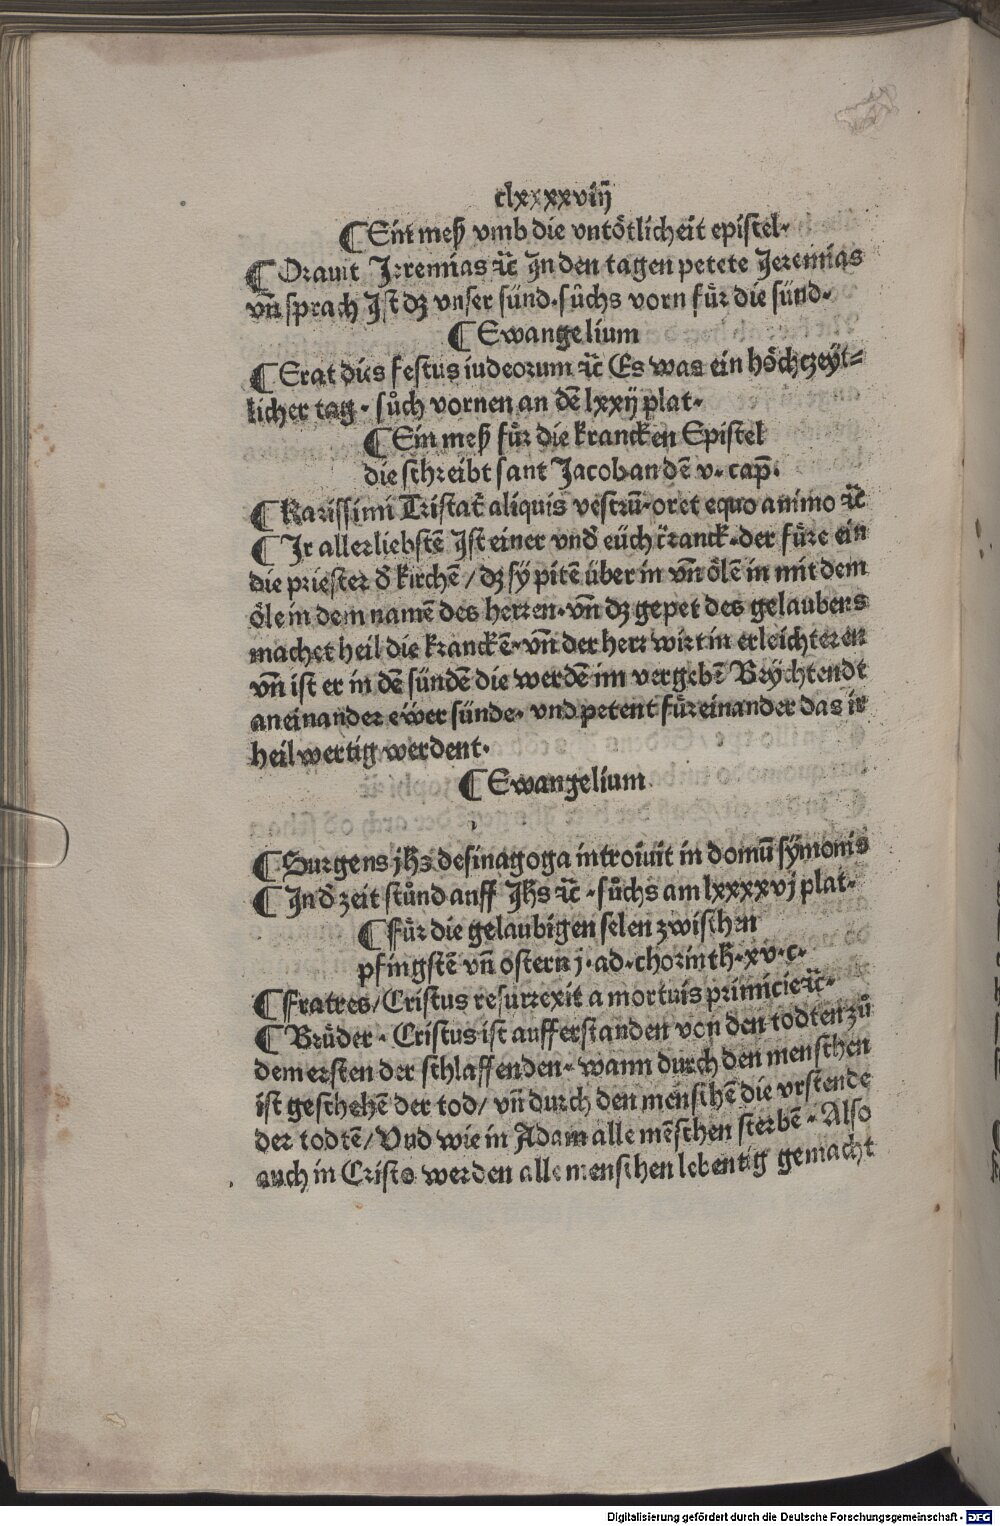 clxxxxviij
¶ Ein meß vmb die vntötlicheit epistel·
¶ Orauit Jeremias ⁊c̄ Jn den tagen petete Jeremias
vn̄ sprach Jst dz vnser sünd·sůchs vorn fu̇r die sünd·
¶ Ewangelium
¶ Erat dies festus iudeorum ⁊c̄ Es was ein höchczeyt⸗
licher tag · sůch vornen an dē lxxij plat·
¶ Ein meß fu̇r die krancken Epistel
die schreibt sant Jacob an dē v· cap̄·
¶ Karissimi Tristat̄ aliquis vestrū·oret equo animo ⁊c̄
¶ Jr allerliebstē Jst einer vnd̄ eüch kranck·der fu̇re ein
die priester d̄ kirchē / dz sy pitē über in vn̄ ölē in mit dem
öle in dem namē des herren·vn̄ dz gepet des gelaubens
machet heil die kranckē·vn̄ der herr wirt in erleichteren
vn̄ ist er in dē sündē die werdē im vergebē Beychtendt
an einander ewer sünde· vnd petent fu̇r einander das ir
heilwertig werdent·
¶ Ewangelium
¶ Surgens jhs de sinagoga introiuit in domū symonis
¶ Jn d̄ zeit stůnd auff Jhs ⁊c̄ ·sůchs am lxxxxvj plat·
¶ fu̇r die gelaubigen selen zwischen
pfingstē vn̄ ostern j·ad·chorinth·xv·c·
¶ Fratres/Cristus resurrexit a mortuis primicie ⁊c̄·
¶ Bru̇der · Cristus ist aufferstanden von den todten zů
dem ersten der schlaffenden· wann durch den menschen
ist geschehē der tod/ vn̄ durch den menschē die vrstende
der todtē/Vnd wie in Adam alle mēschen sterbē · Also
auch in Cristo werden alle menschen lebentig gemacht
Digitalisierung gefördert durch die Deutsche Forschungsgemeinschaft - DFG